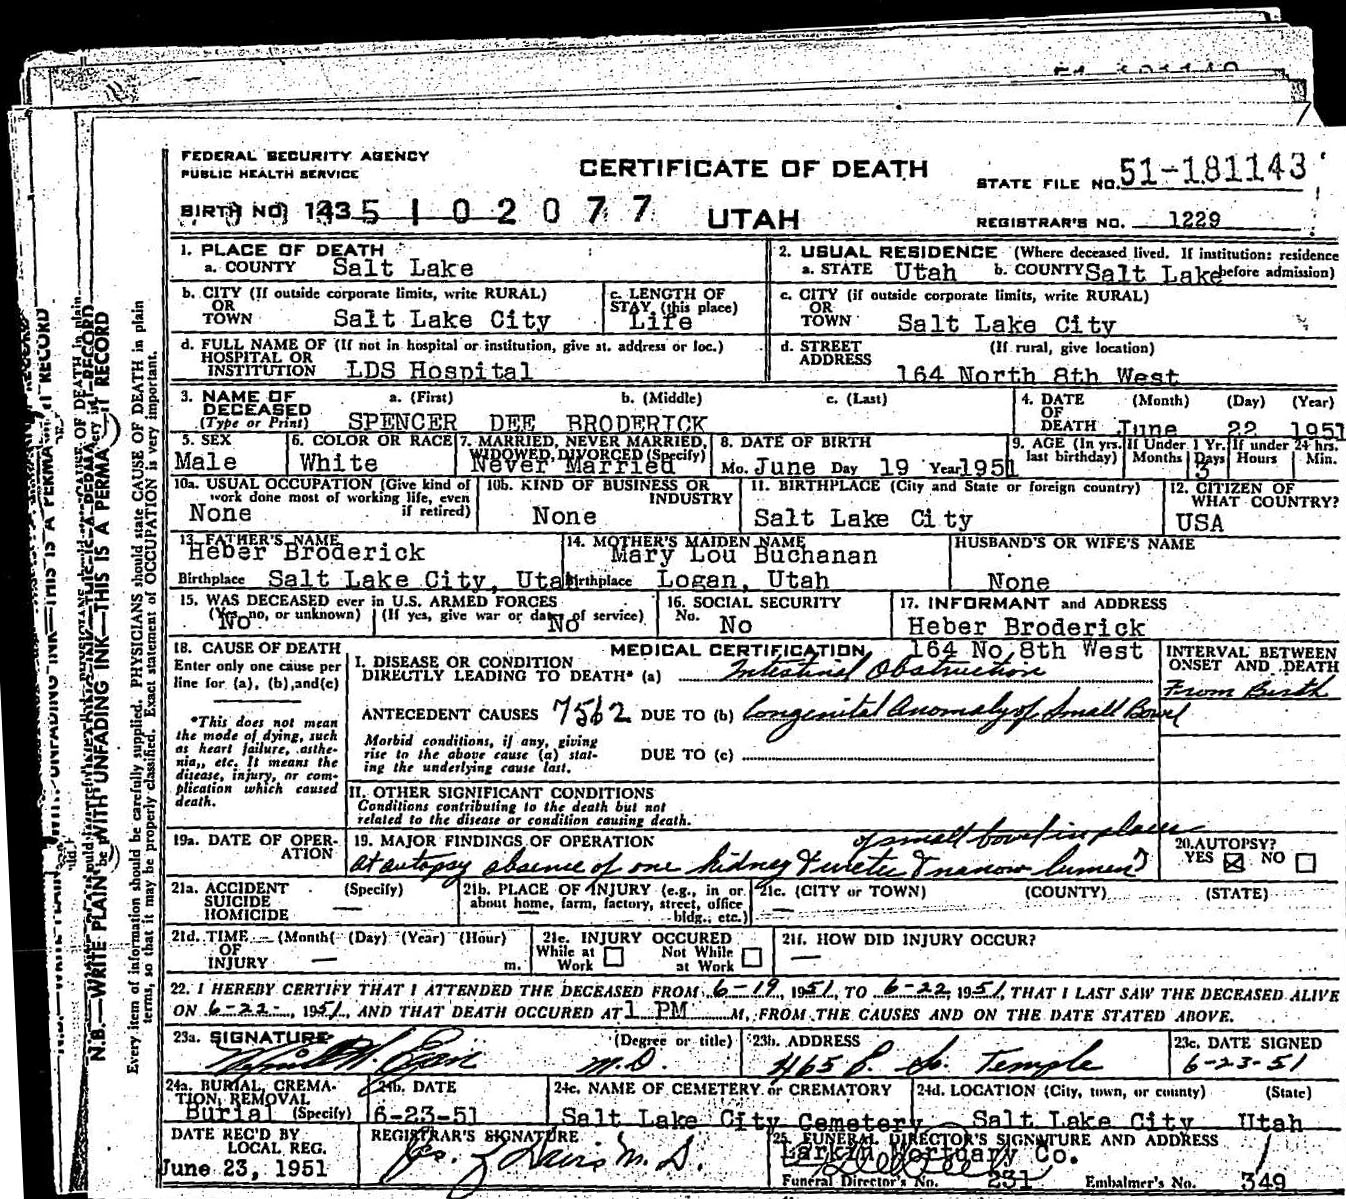 51-181142
FEDERAL SECURITY AGENCY
PUBLIC HEALTH SERVICE
CERTIFICATE OF DEATH
STATE FILE NO. 51-181143
BIRTH NO. 143 5 1 0 2 0 7 7
UTAH
REGISTRAR'S NO. 1229
1. PLACE OF DEATH
a. COUNTY Salt Lake
2. USUAL RESIDENCE (Where deceased lived. If institution: residence before admission)
a. STATE Utah b. COUNTY Salt Lake
b. CITY (If outside corporate limits, write RURAL) OR TOWN Salt Lake City
c. LENGTH OF STAY (this place) Life
c. CITY (if outside corporate limits, write RURAL) OR TOWN Salt Lake City
d. FULL NAME OF (If not in hospital or institution, give st. address or loc.) HOSPITAL OR INSTITUTION LDS Hospital
d. STREET ADDRESS (If rural, give location) 164 North 8th West
3. NAME OF DECEASED (Type or Print) a. (First) b. (Middle) c. (Last)
SPENCER DEE BRODERICK
4. DATE OF DEATH (Month) (Day) (Year) June 22 1951
5. SEX Male
6. COLOR OR RACE White
7. MARRIED, NEVER MARRIED, WIDOWED, DIVORCED (Specify) Never Married
8. DATE OF BIRTH Mo. June Day 19 Year 1951
9. AGE (In yrs. last birthday) If Under 1 Yr. Months Days 3 If under 24 hrs. Hours Min.
10a. USUAL OCCUPATION (Give kind of work done most of working life, even if retired) None
10b. KIND OF BUSINESS OR INDUSTRY None
11. BIRTHPLACE (City and State or foreign country) Salt Lake City
12. CITIZEN OF WHAT COUNTRY? USA
13. FATHER'S NAME Heber Broderick
Birthplace Salt Lake City, Utah
14. MOTHER'S MAIDEN NAME Mary Lou Buchanan
Birthplace Logan, Utah
HUSBAND'S OR WIFE'S NAME None
15. WAS DECEASED ever in U.S. ARMED FORCES
(Yes, no, or unknown) No (If yes, give war or dates of service) No
16. SOCIAL SECURITY No. No
17. INFORMANT and ADDRESS
Heber Broderick
164 No 8th West
18. CAUSE OF DEATH
Enter only one cause per line for (a), (b), and (c)
*This does not mean the mode of dying, such as heart failure, asthenia, etc. It means the disease, injury, or complication which caused death.
MEDICAL CERTIFICATION
I. DISEASE OR CONDITION DIRECTLY LEADING TO DEATH* (a) Intestinal Obstruction
INTERVAL BETWEEN ONSET AND DEATH
From Birth
ANTECEDENT CAUSES 7562 DUE TO (b) Congenital Anomaly of Small Bowel
Morbid conditions, if any, giving rise to the above cause (a) stating the underlying cause last.
DUE TO (c)
II. OTHER SIGNIFICANT CONDITIONS
Conditions contributing to the death but not related to the disease or condition causing death.
19a. DATE OF OPERATION
19. MAJOR FINDINGS OF OPERATION
of small bowel in places
At autopsy absence of one kidney & ureter & narrow lumen
20. AUTOPSY? YES ☒ NO ☐
21a. ACCIDENT SUICIDE HOMICIDE (Specify) —
21b. PLACE OF INJURY (e.g., in or about home, farm, factory, street, office bldg., etc.) —
21c. (CITY or TOWN) (COUNTY) (STATE) —
21d. TIME OF INJURY (Month) (Day) (Year) (Hour) m. —
21e. INJURY OCCURED While at Work ☐ Not While at Work ☐
21f. HOW DID INJURY OCCUR? —
22. I HEREBY CERTIFY THAT I ATTENDED THE DECEASED FROM 6-19, 1951, TO 6-22, 1951, THAT I LAST SAW THE DECEASED ALIVE
ON 6-22-, 1951, AND THAT DEATH OCCURED AT 1 PM M., FROM THE CAUSES AND ON THE DATE STATED ABOVE.
23a. SIGNATURE (Degree or title) M.D.
23b. ADDRESS 465 E. So. Temple
23c. DATE SIGNED 6-23-51
24a. BURIAL, CREMATION, REMOVAL (Specify) Burial
24b. DATE 6-23-51
24c. NAME OF CEMETERY or CREMATORY Salt Lake City Cemetery
24d. LOCATION (City, town, or county) (State) Salt Lake City Utah
DATE REC'D BY LOCAL REG. June 23, 1951
REGISTRAR'S SIGNATURE
25. FUNERAL DIRECTOR'S SIGNATURE AND ADDRESS
Larkin Mortuary Co.
Funeral Director's No. 231 Embalmer's No. 349
N.B.—WRITE PLAINLY WITH UNFADING INK—THIS IS A PERMANENT RECORD
Every item of information should be carefully supplied. PHYSICIANS should state CAUSE OF DEATH in plain
terms, so that it may be properly classified. Exact statement of OCCUPATION is very important.